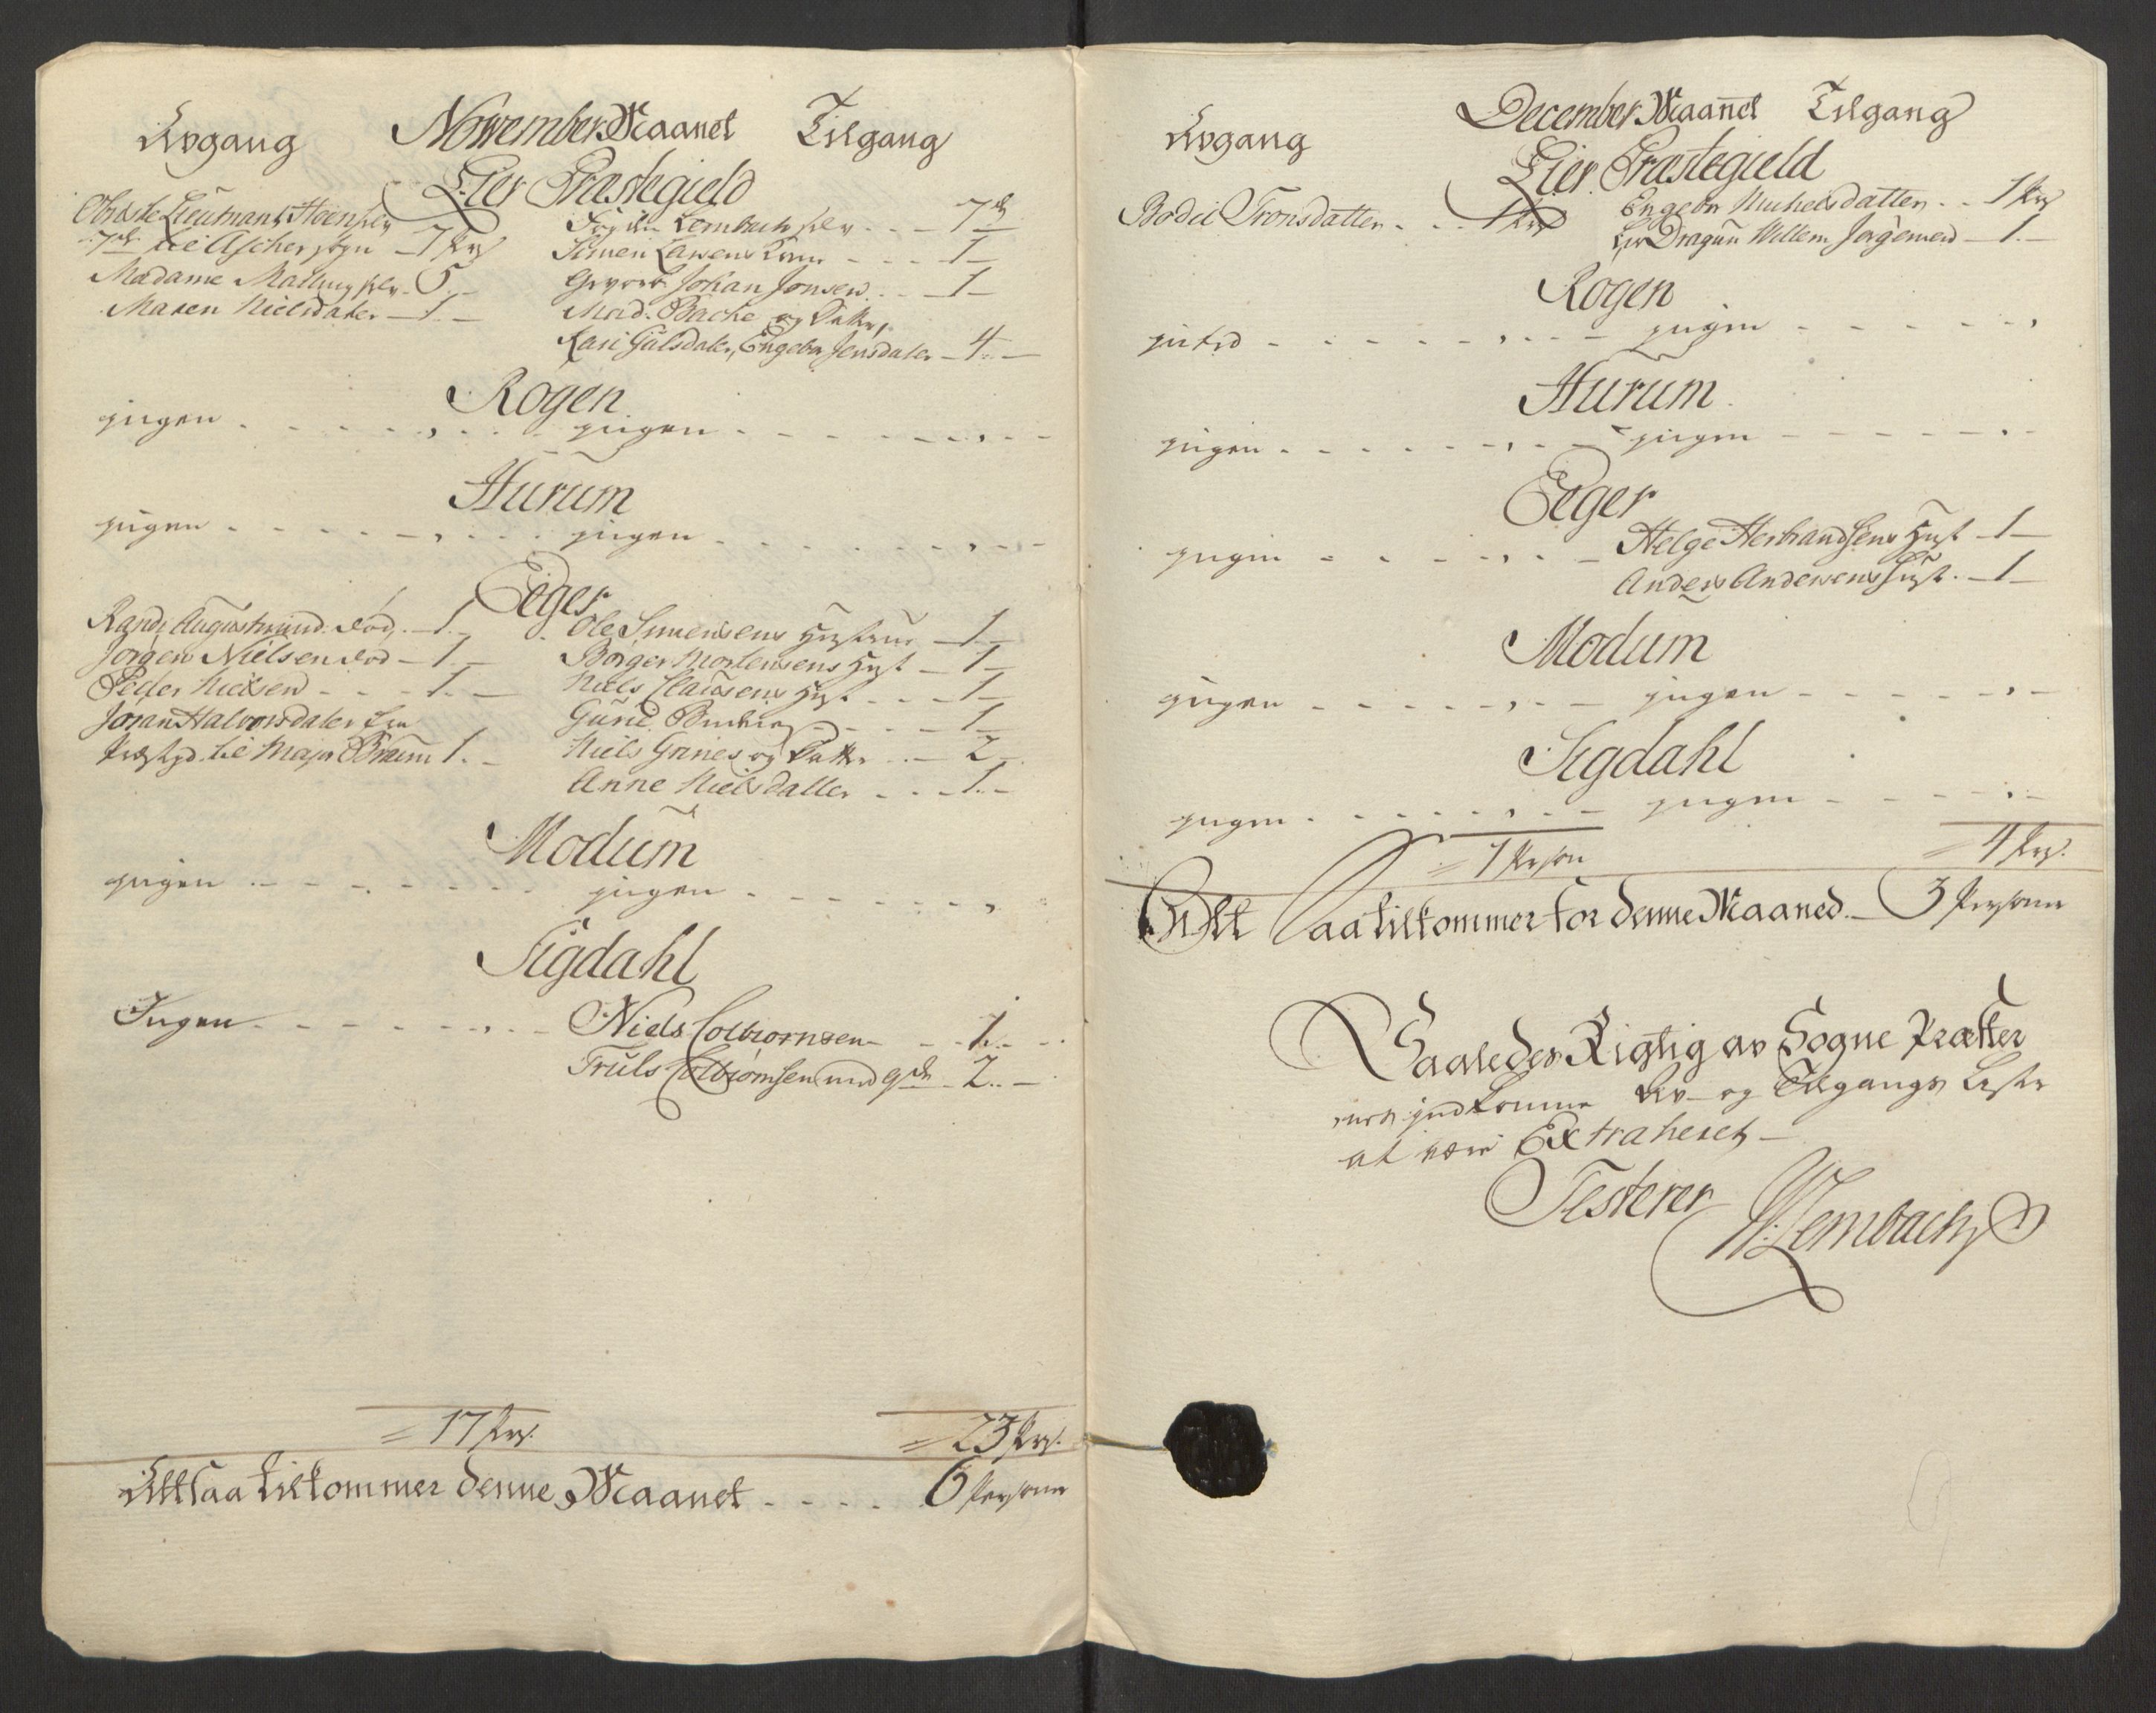 Avgang November Maanet Tilgang
Lier Præstegield
Obriste Lieutnant Hoen selv
7de til Ascher sogn - 7 Prs
Madame Malling selv - 5 -
Maren Nielsdater - 1 -
Lembach selv - - - 7
Simen Larsens - - - 1 -
Johan Jonsen - - 1 -
Mad. Bache og Datter,
Kari Gulsdater, Engebr Jensdater - 4 -
Rogen
ingen - - - - ingen - - - -
Hurum
ingen - - - - ingen - - - -
Eeger
Randi Augustinund. død - 1 -
Jørgen Nielsen død - 1 -
Peder Nielsen - - - 1 -
Joran Halvorsdater fra
Præstgd. til Major Bruun 1 -
Ole Simensens Hustrue - 1 -
Børger Mortensens Hust - 1 -
Niels Clausens Hust - - 1 -
Guri - - - 1 -
Niels Grines og Datter - - 2 -
Anne Nielsdatter - - - 1 -
Modum
ingen - - - - ingen - - - -
Sigdahl
Ingen - - - - Niels Colbiørnsen - - 1 - -
Truls Colbiørnsen med qde - 2 -
= 17 Prs. = 23 Prs.
Altsaa tilkommer denne Maanet - - - - 6 Personer
Avgang December Maanet Tilgang
Lier Præstegield
Bodil Tronsdatter - - - 1 Prs
Engebr Michelsdatter - - 1 Prs
Dragun Willem Jørgensen - 1 -
Rogen
- - - - ingen - - - -
Hurum
ingen - - - - ingen - - - -
Eeger
ingen - - - - Helge Herbrandsens Hust - 1 -
Anders Andersens Hust. - 1 -
Modum
ingen - - - - ingen - - - -
Sigdahl
ingen - - - - ingen - - - -
= 1 Person = 4 Prs.
Altsaa tilkommer for denne Maaned - 3 Persooner
Saaledes Rigtig av Sogne Præster
nes indkomne Av- og Tilgangs Lister
at være Extraheret -
Testerer W: Lembach